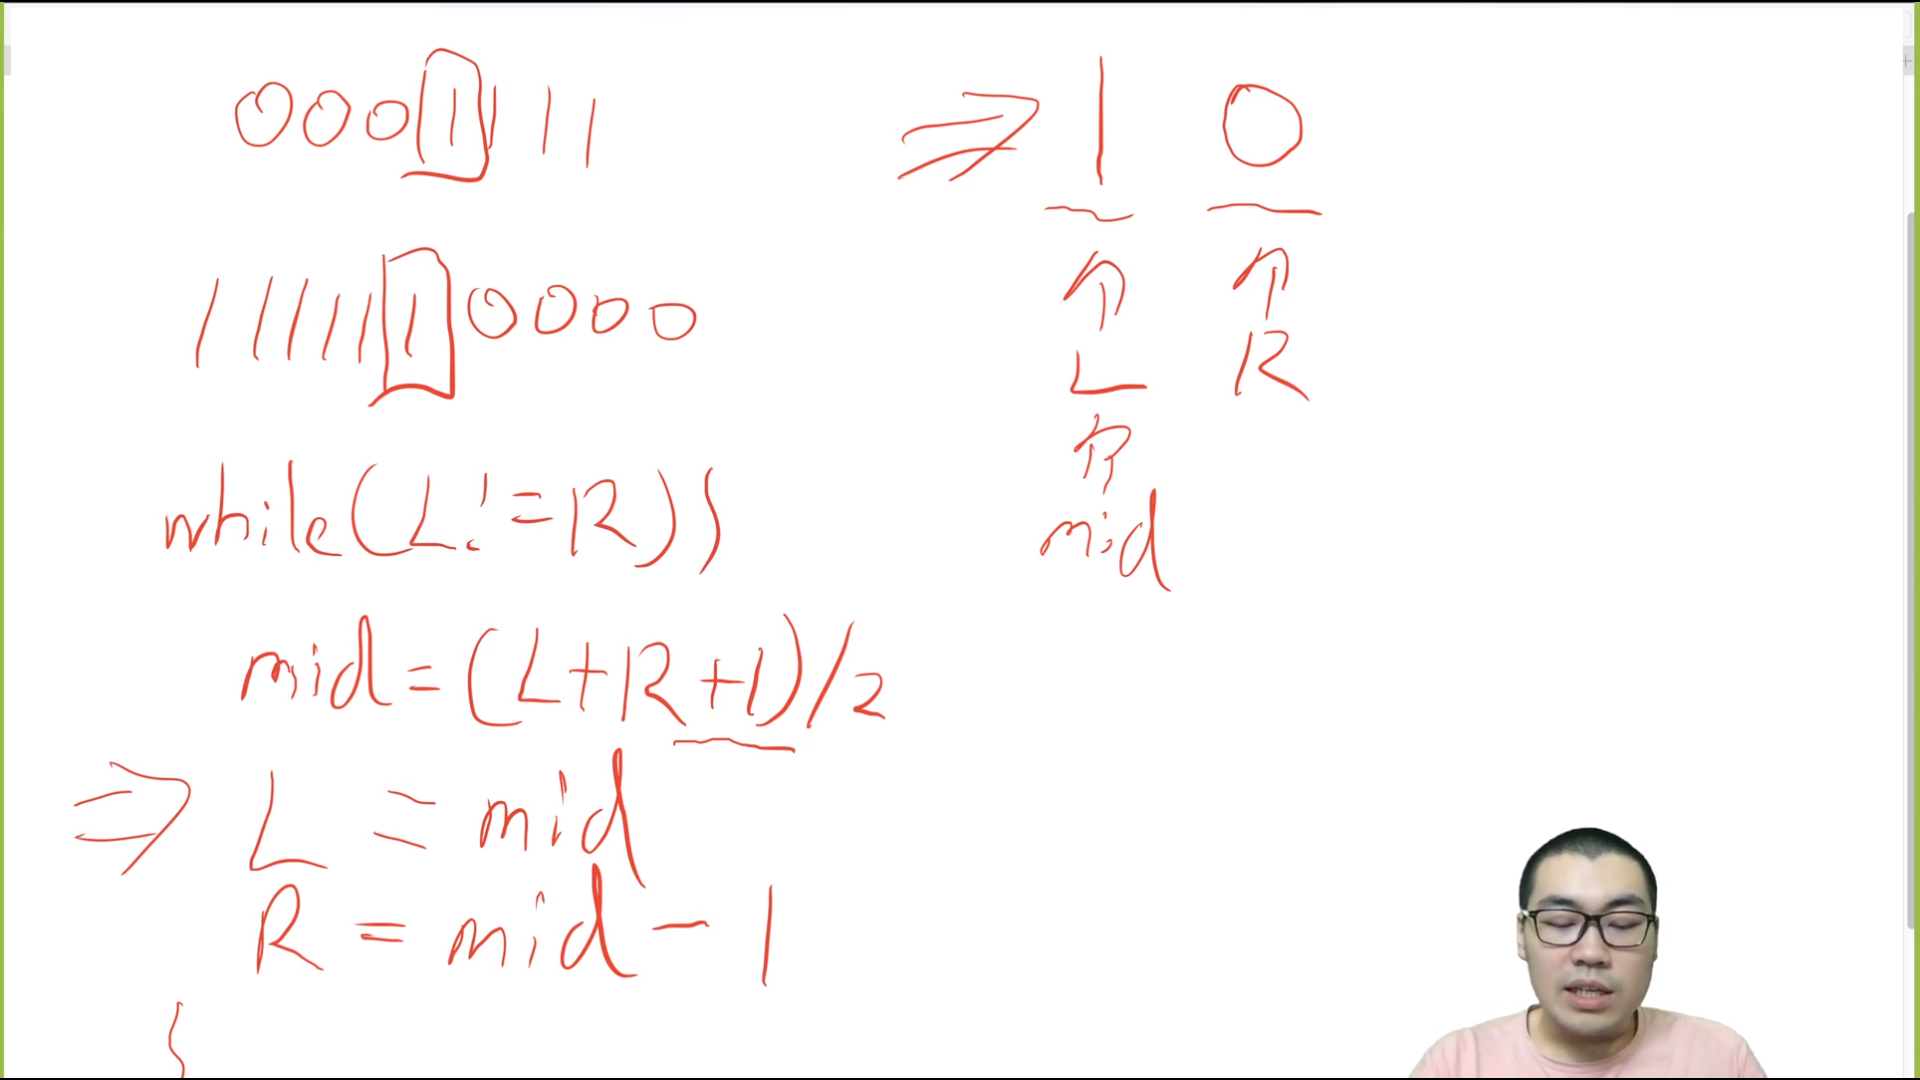 0001111
1111110000
while(L!=R){
mid=(L+R+1)/2
⇒ L = mid
R = mid - 1
}
⇒ 1 0
↑ ↑
L R
↑
mid